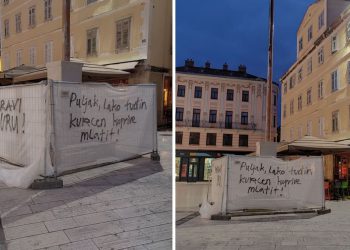 RAVI
URU!
Puljak, lako tuđin
kurcen koprive
mlatit!
Puljak, lako tuđin
kurcen koprive
mlatit!